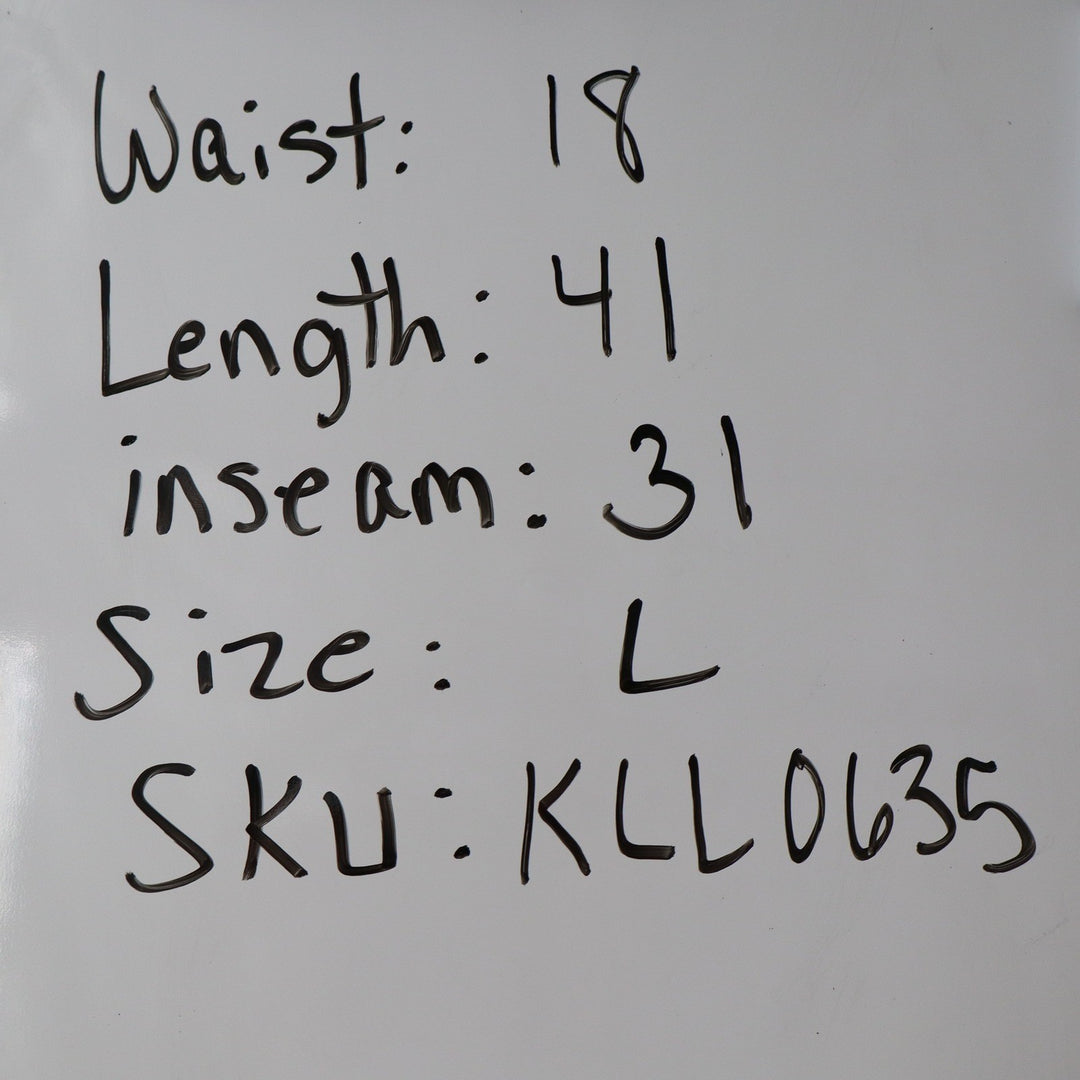 Waist: 18
Length: 41
inseam: 31
Size: L
SKU: KLL0635